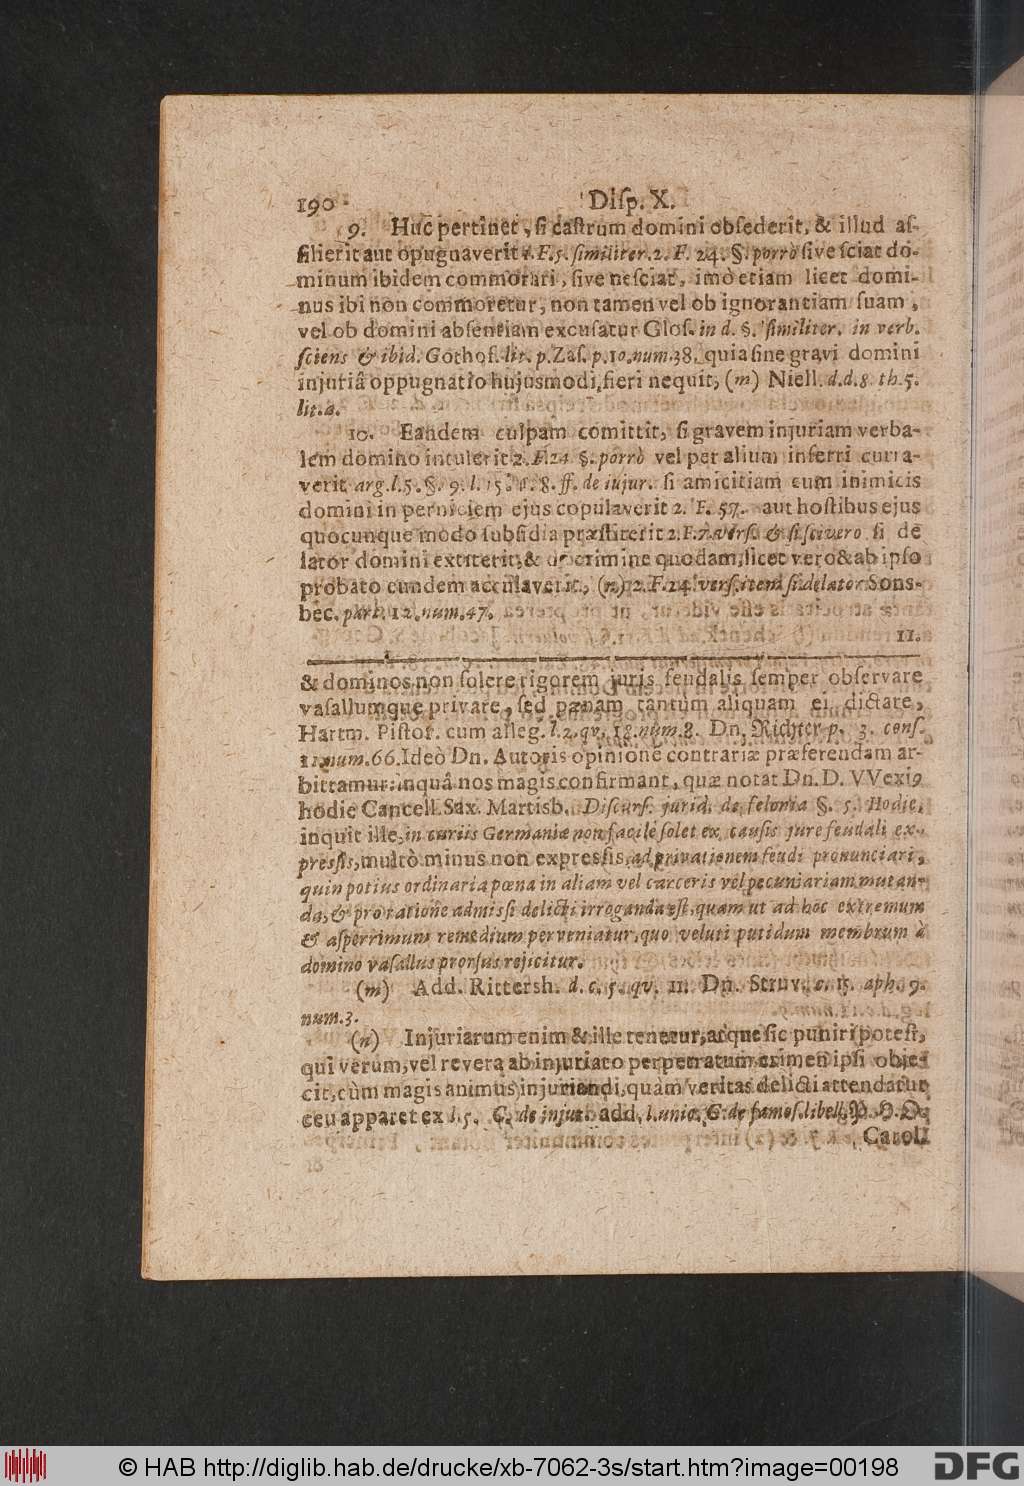 190 Diſp. X.
9. Huc pertinet, ſi caſtrum domini obſederit, & illud aſ-
ſilierit aut opugnaverit 1. F. 5. ſimiliter. 2. F. 24. §. porrò ſive ſciat do-
minum ibidem commorari, ſive neſciat, imò etiam licet domi-
nus ibi non commoretur, non tamen vel ob ignorantiam ſuam,
vel ob domini abſentiam excuſatur Gloſ. in d. §. ſimiliter. in verb.
ſciens & ibid. Gothof. lit. p. Zaſ. p. 10. num. 38. quia ſine gravi domini
injuriâ oppugnatio hujusmodi fieri nequit, (m) Niell. d. d. 8. th. 5.
lit. a.
10. Eandem culpam comittit, ſi gravem injuriam verba-
lem domino intulerit 2. F. 24. §. porrò vel per alium inferri curra-
verit arg. l. 5. §. 9. l. 15. §. 8. ff. de injur. ſi amicitiam cum inimicis
domini in perniciem ejus copulaverit 2. F. 57. aut hoſtibus ejus
quocunque modo ſubſidia præſtiterit 2. F. 7. verſ. & ſi ſcivero ſi de
lator domini extiterit, & de crimine quodam, licet vero & ab ipſo
probato eundem acculaverit, (n) 2. F. 24. verſ. item ſi delator Sons-
bec. part. 12. num. 47.
11.
& dominos non ſolere rigorem juris feudalis ſemper obſervare
vaſallumque privare, ſed pœnam tantùm aliquam ei dictare,
Hartm. Piſtor. cum alleg. l. 2. qv. 18. num. 8. Dn. Richter p. 3. conſ.
11. num. 66. Ideò Dn. Autoris opinione contrariæ præferendam ar-
bittamur: inquâ nos magis confirmant, quæ notat Dn. D. VVexi9
hodie Cancell. Sax. Martisb. Diſcurſ. jurid. de felonia §. 5. Hodie,
inquit ille, in curiis Germaniæ non facilè ſolet ex cauſis jure feudali ex-
preſſis, multò minus non expreſſis, ad privationem feudi pronunciari,
quin potius ordinaria pœna in aliam vel carceris vel pecuniariam mutan-
da, & pro ratione admiſſi delicti irroganda eſt, quam ut ad hoc extremum
& aſperrimum remedium perveniatur, quo veluti putidum membrum à
domino vaſallus prorſus rejicitur.
(m) Add. Rittersh. d. c. 5. qv. 11. Dn. Struv. c. 15. aph. 9.
num. 3.
(n) Injuriarum enim & ille tenetur, atque ſic puniri poteſt,
qui verum, vel revera ab injuriato perpetratum crimen ipſi obje-
cit, cùm magis animus injuriandi, quàm veritas delicti attendatur
ceu apparet ex l. 5. C. de injur. add. l. unic. C. de famoſ. libell. P. H. O.
Caroli
© HAB http://diglib.hab.de/drucke/xb-7062-3s/start.htm?image=00198
DFG